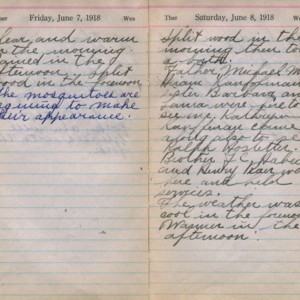 Friday, June 7, 1918
lear and warm
the morning
ained in the
afternoon. Split
ood in the forenoon
the mosquitoes are
eginning to make
heir appearance.
Saturday, June 8, 1918
Split wood in the
morning then too
a bath.
Father, Michael M
Sister Barbara an
were here to
see me, Kathryn
came
along also to see
Ralph Hostetler.
Brother J. C. Habe
and Henry wer
here and held
services.
The weather was
cool in the foreno
Warmer in the
afternoon.